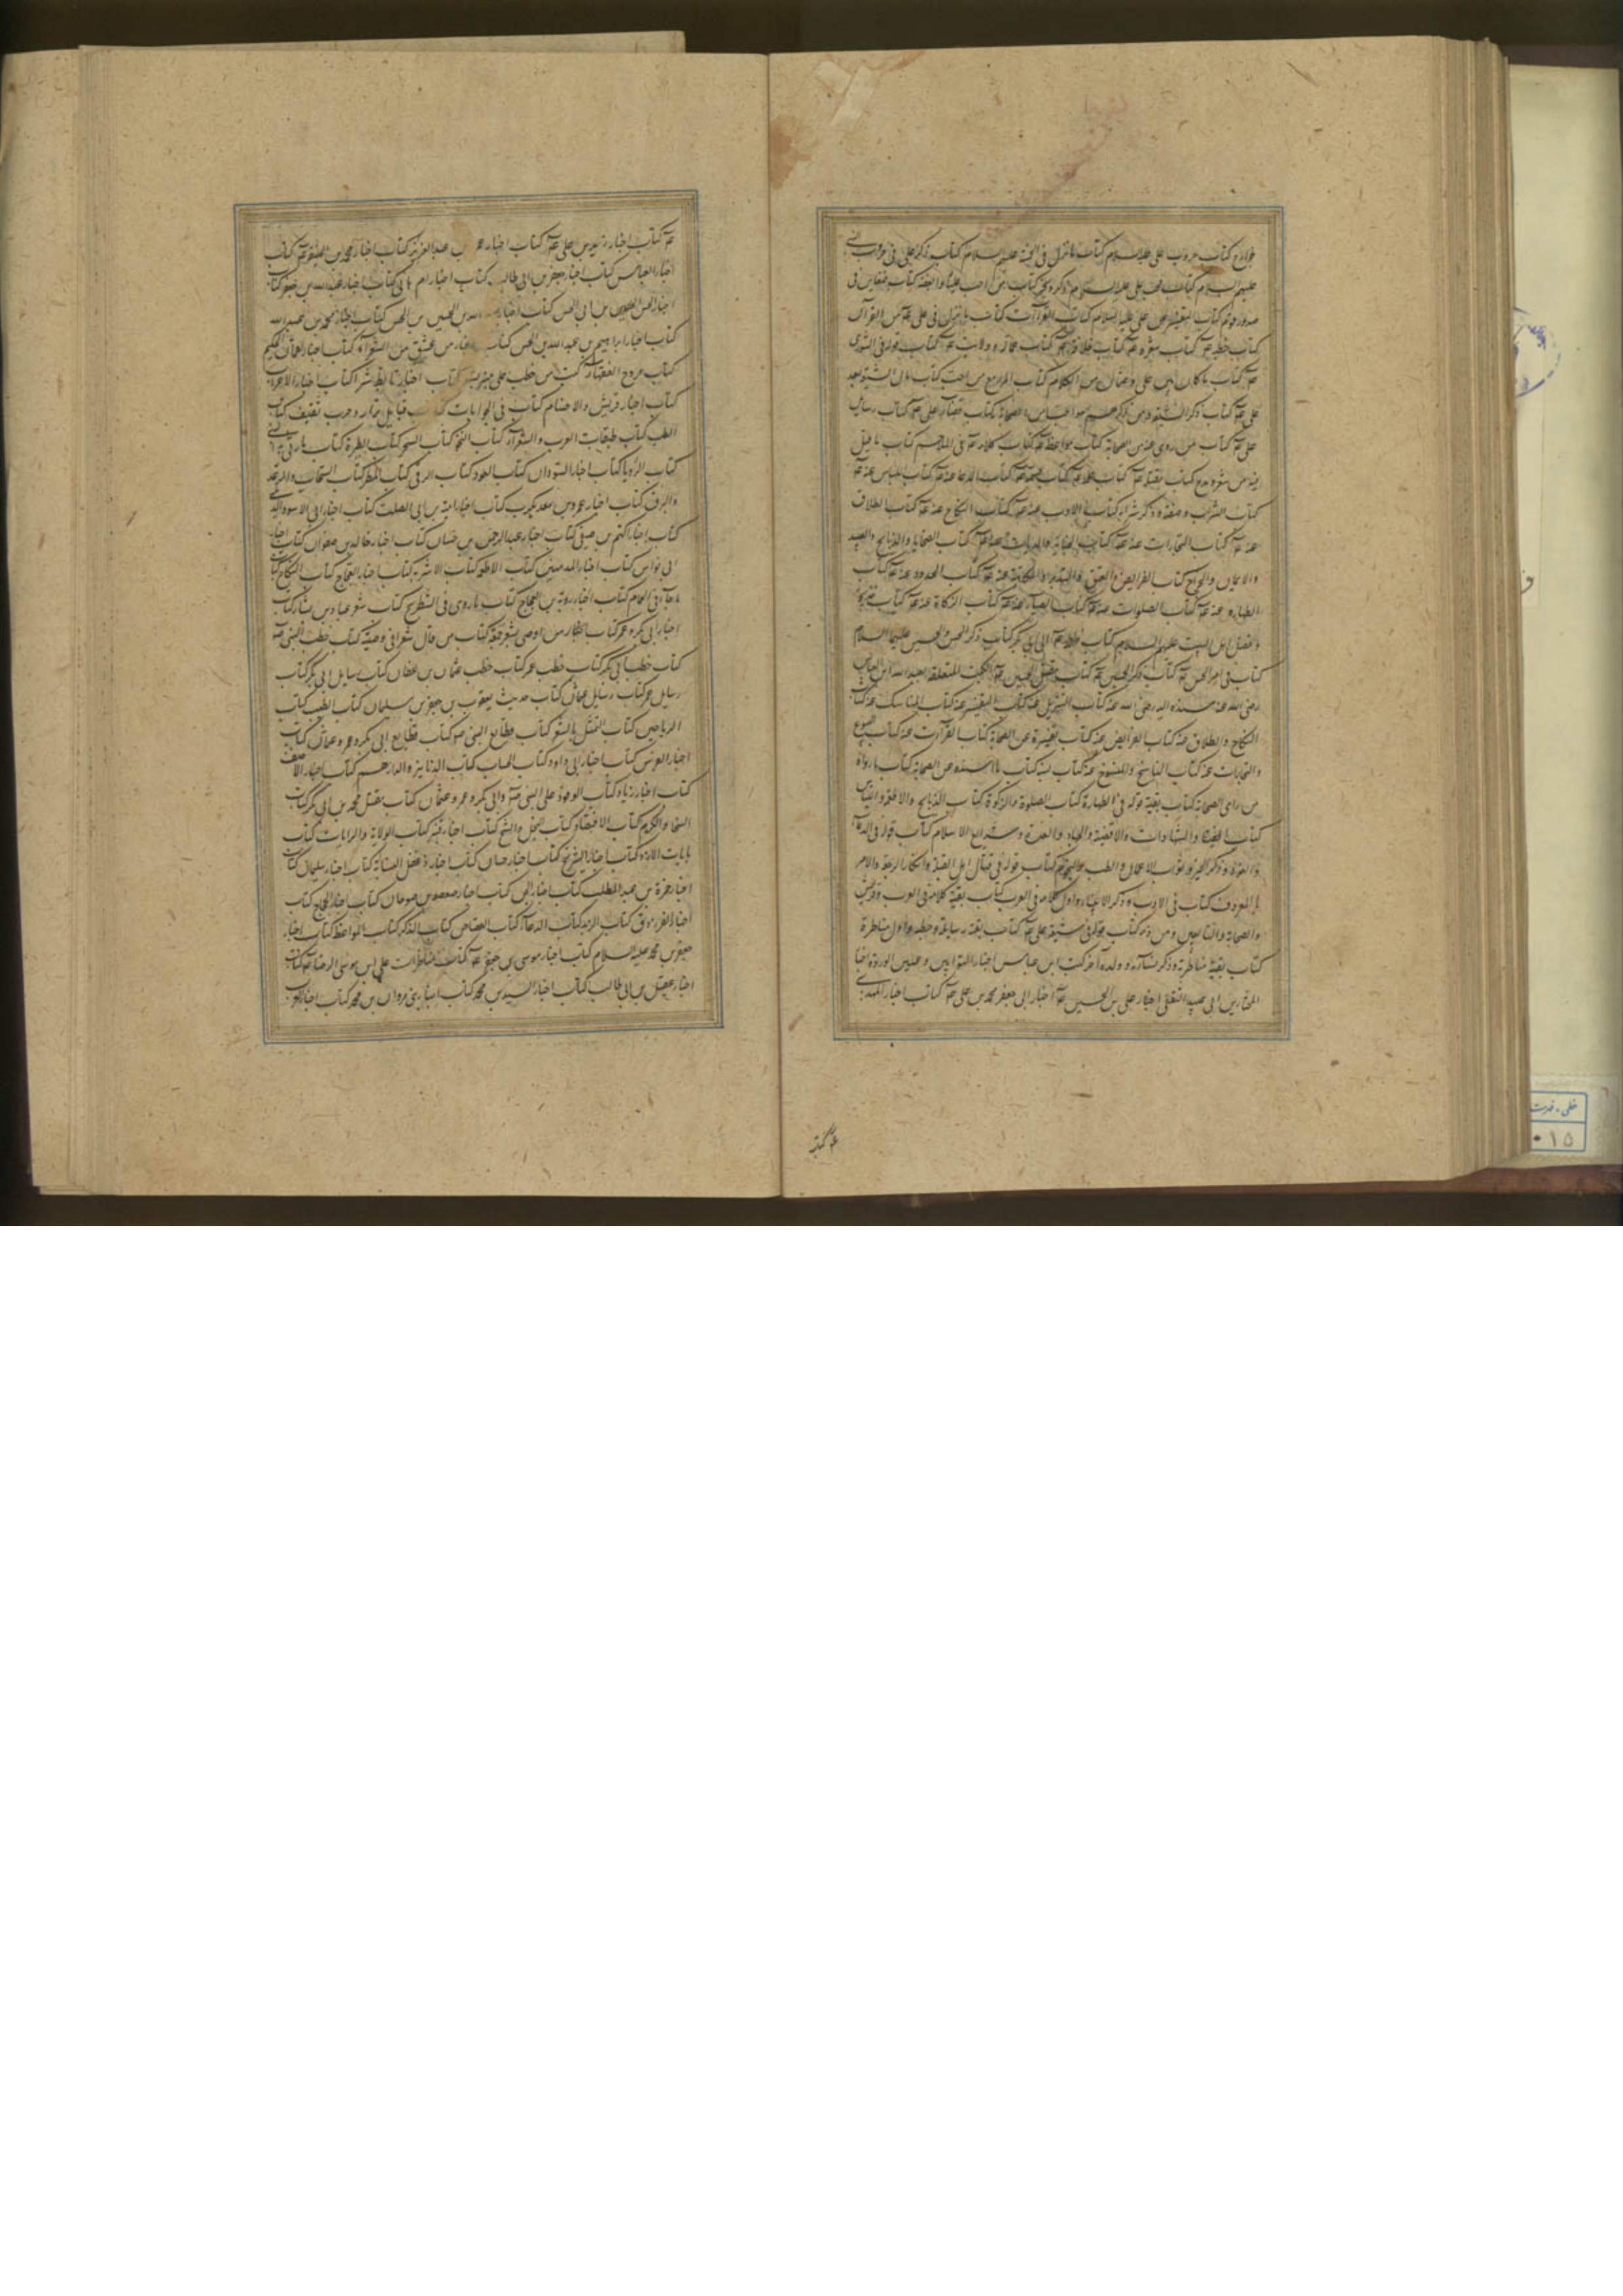 الخوارج كتاب حروب علي عليه السلام كتاب ما نزل في الخمسة عليهم السلام كتاب ذكر علي في حروب النبي
عليهم السلام كتاب محب علي عليه السلام ومن ذكره بخير كتاب من احب عليا وابغضه كتاب ضغاين في
صدور قوم كتاب التفسير عن علي عليه السلام كتاب القراآت كتاب ما نزل في علي عم من القرآن
كتاب خطبه عم كتاب شعره عم كتاب خلافته عم كتاب عماله وولاته عم كتاب قوله في الشورى
عم كتاب ما كان بين علي وعثمان من الكلام كتاب المرء مع من احب كتاب مآل الشيعة بعد
علي عم كتاب ذكر الشيعة ومن ذكرهم هو او من احب من الصحابة كتاب قضاء علي عم كتاب رسايل
علي عم كتاب من روى عنه من الصحابة كتاب مواعظه عم كتاب كلامه عم في الملاحم كتاب ما قيل
فيه من شعر ومدح كتاب مقتله عم كتاب علمه عم كتاب قسمه عم كتاب الدعا عنه عم كتاب اللباس عنه عم
كتاب الشراب وصفته وذكر شرابه كتاب الادب عنه عم كتاب النكاح عنه عم كتاب الطلاق
عنه عم كتاب التجارات عنه عم كتاب الجنايز والديات عنه عم كتاب الضحايا والذبايح والصيد
والايمان والخراج كتاب الفرايض والعتق والتدبير والمكاتبة عنه عم كتاب الحدود عنه عم كتاب
الطهارة عنه عم كتاب الصلوات عنه عم كتاب الصيام عنه عم كتاب الزكاة عنه عم كتاب
وفضل اهل البيت عليهم السلام كتاب فاطمة عم ابي بكر كتاب ذكر الحسن والحسين عليهما السلام
كتاب في امر الحسن عم كتاب ذكر الحسين عم كتاب مقتل الحسين عم الكتب المتعلقة بعبد الله ابن العباس
رضي الله عنه مسنده اليه رضي الله عنه كتاب التنزيل عنه كتاب التفسير عنه كتاب المناسك عنه كتاب
النكاح والطلاق عنه كتاب الفرايض عنه كتاب تفسيره عن الصحابة كتاب القراآت عنه كتاب البيوع
والتجارات عنه كتاب الناسخ والمنسوخ عنه كتاب نسبه كتاب ما اسنده عن الصحابة كتاب ما رواه
من راى الصحابة كتاب بقية قوله في الطهارة كتاب الصلوة والزكوة كتاب الذبايح والاطعمة واللباس
كتاب الفتيا والشهادات والاقضية والجهاد والعدة وشرايع الاسلام كتاب قوله في الدعا
والعوذ وذكر الخير وثواب الاعمال والطب والنجوم كتاب قوله في قتال اهل القبلة وانكار الرجعة والامر
بالمعروف كتاب في الادب وذكر الانبياء واول كلامه في العرب كتاب بقية كلامه في العرب وقريش
والصحابة والتابعين ومن ذمه كتاب قوله في شيعة علي عم كتاب بقية رسايله وخطبه واول مناظرة
كتاب بقية مناظرته وذكر نسآئه وولده آخر كتب ابن عباس اخبار التوابين وعين الوردة اخبار
المختار بن ابي عبيد الثقفي اخبار علي بن الحسين عم اخبار ابي جعفر محمد بن علي عم كتاب اخبار المهدي
عم كتاب
عم كتاب اخبار زيد بن علي عم كتاب اخبار عمر بن عبد العزيز كتاب اخبار محمد بن الحنفية عم كتاب
اخبار العباس كتاب اخبار جعفر بن ابي طالب كتاب اخبار ام هاني كتاب اخبار عبد الله بن جعفر كتاب
اخبار الحسن بن ابي الحسن كتاب اخبار عبد الله بن الحسن بن الحسن كتاب اخبار محمد بن عبد الله
كتاب اخبار ابراهيم بن عبد الله بن الحسن كتاب اخبار من عشق من الشعرآء كتاب اخبار لقمان الحكيم
كتاب مروح الفقهاء كتاب من خطب على منبر بشعر كتاب اخبار تابط شرا كتاب اخبار الاعراب
كتاب اخبار قريش والاصنام كتاب في الجوابات كتاب قبايل نزار وحرب ثقيف كتاب
الطب كتاب طبقات العرب والشعرآء كتاب النحو كتاب السحر كتاب الطيرة كتاب
كتاب الرؤيا كتاب اخبار السودان كتاب العوذ كتاب الرقى كتاب المطر كتاب السحاب والرعد
والبرق كتاب اخبار عمرو بن معد يكرب كتاب اخبار امية بن ابي الصلت كتاب اخبار ابي الاسود الدئلي
كتاب اخبار اكثم بن صيفي كتاب اخبار عبد الرحمن بن حسان كتاب اخبار خالد بن صفوان كتاب اخبار
ابي نواس كتاب اخبار المذنبين كتاب الاطعمة كتاب الاشربة كتاب اخبار العجاج كتاب النكاح كتاب
ما جآء في الحمام كتاب اخبار رؤبة بن العجاج كتاب ما روى في الشطرنج كتاب شعر عباد بن بشار كتاب
اخبار ابي بكر وعمر كتاب اخبار من اوصى بشعر جمعه كتاب من قال شعرا في وصيته كتاب خطب النبي ص
كتاب خطب ابي بكر كتاب خطب عمر كتاب خطب عثمان بن عفان كتاب رسايل ابي بكر كتاب
رسايل عمر كتاب رسايل عثمان كتاب حديث يعقوب بن جعفر بن سليمان كتاب الطيب كتاب
الرياحين كتاب التمثل بالشعر كتاب قطايع النبي ص كتاب قطايع ابي بكر وعمر وعثمان كتاب
اخبار الفرس كتاب اخبار ابي داود كتاب الجنايات كتاب الدنانير والدراهم كتاب اخبار الاحنف
كتاب اخبار زياد كتاب الوفود على النبي ص وابي بكر وعمر وعثمان كتاب مقتل محمد بن ابي بكر كتاب
السخا والكرم كتاب الاقتضاء كتاب البخل والشح كتاب اخبار قنبر كتاب الالوية والرايات كتاب
رايات الازد كتاب اخبار شريح كتاب اخبار حسان كتاب اخبار دغفل النسابة كتاب اخبار سليمان كتاب
اخبار حمزة بن عبد المطلب كتاب اخبار الجن كتاب اخبار صعصعة بن صوحان كتاب اخبار الحجاج كتاب
اخبار الفرزدق كتاب الزهد كتاب الدعآء كتاب القصاص كتاب الذكر كتاب المواعظ كتاب اخبار
جعفر بن محمد عليه السلام كتاب اخبار موسى بن جعفر عم كتاب مناظرات علي ابن موسى الرضا عم كتاب
اخبار عقيل بن ابي طالب كتاب اخبار السيد بن محمد كتاب اخبار بني مروان بن محمد كتاب اخبار العرب
خطی ـ فهرست
٠١٥